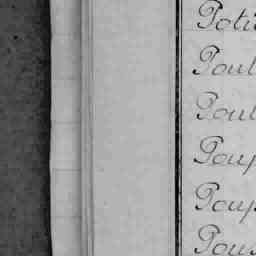 Poti
Poul
Poul
Poup
Poup
Pous